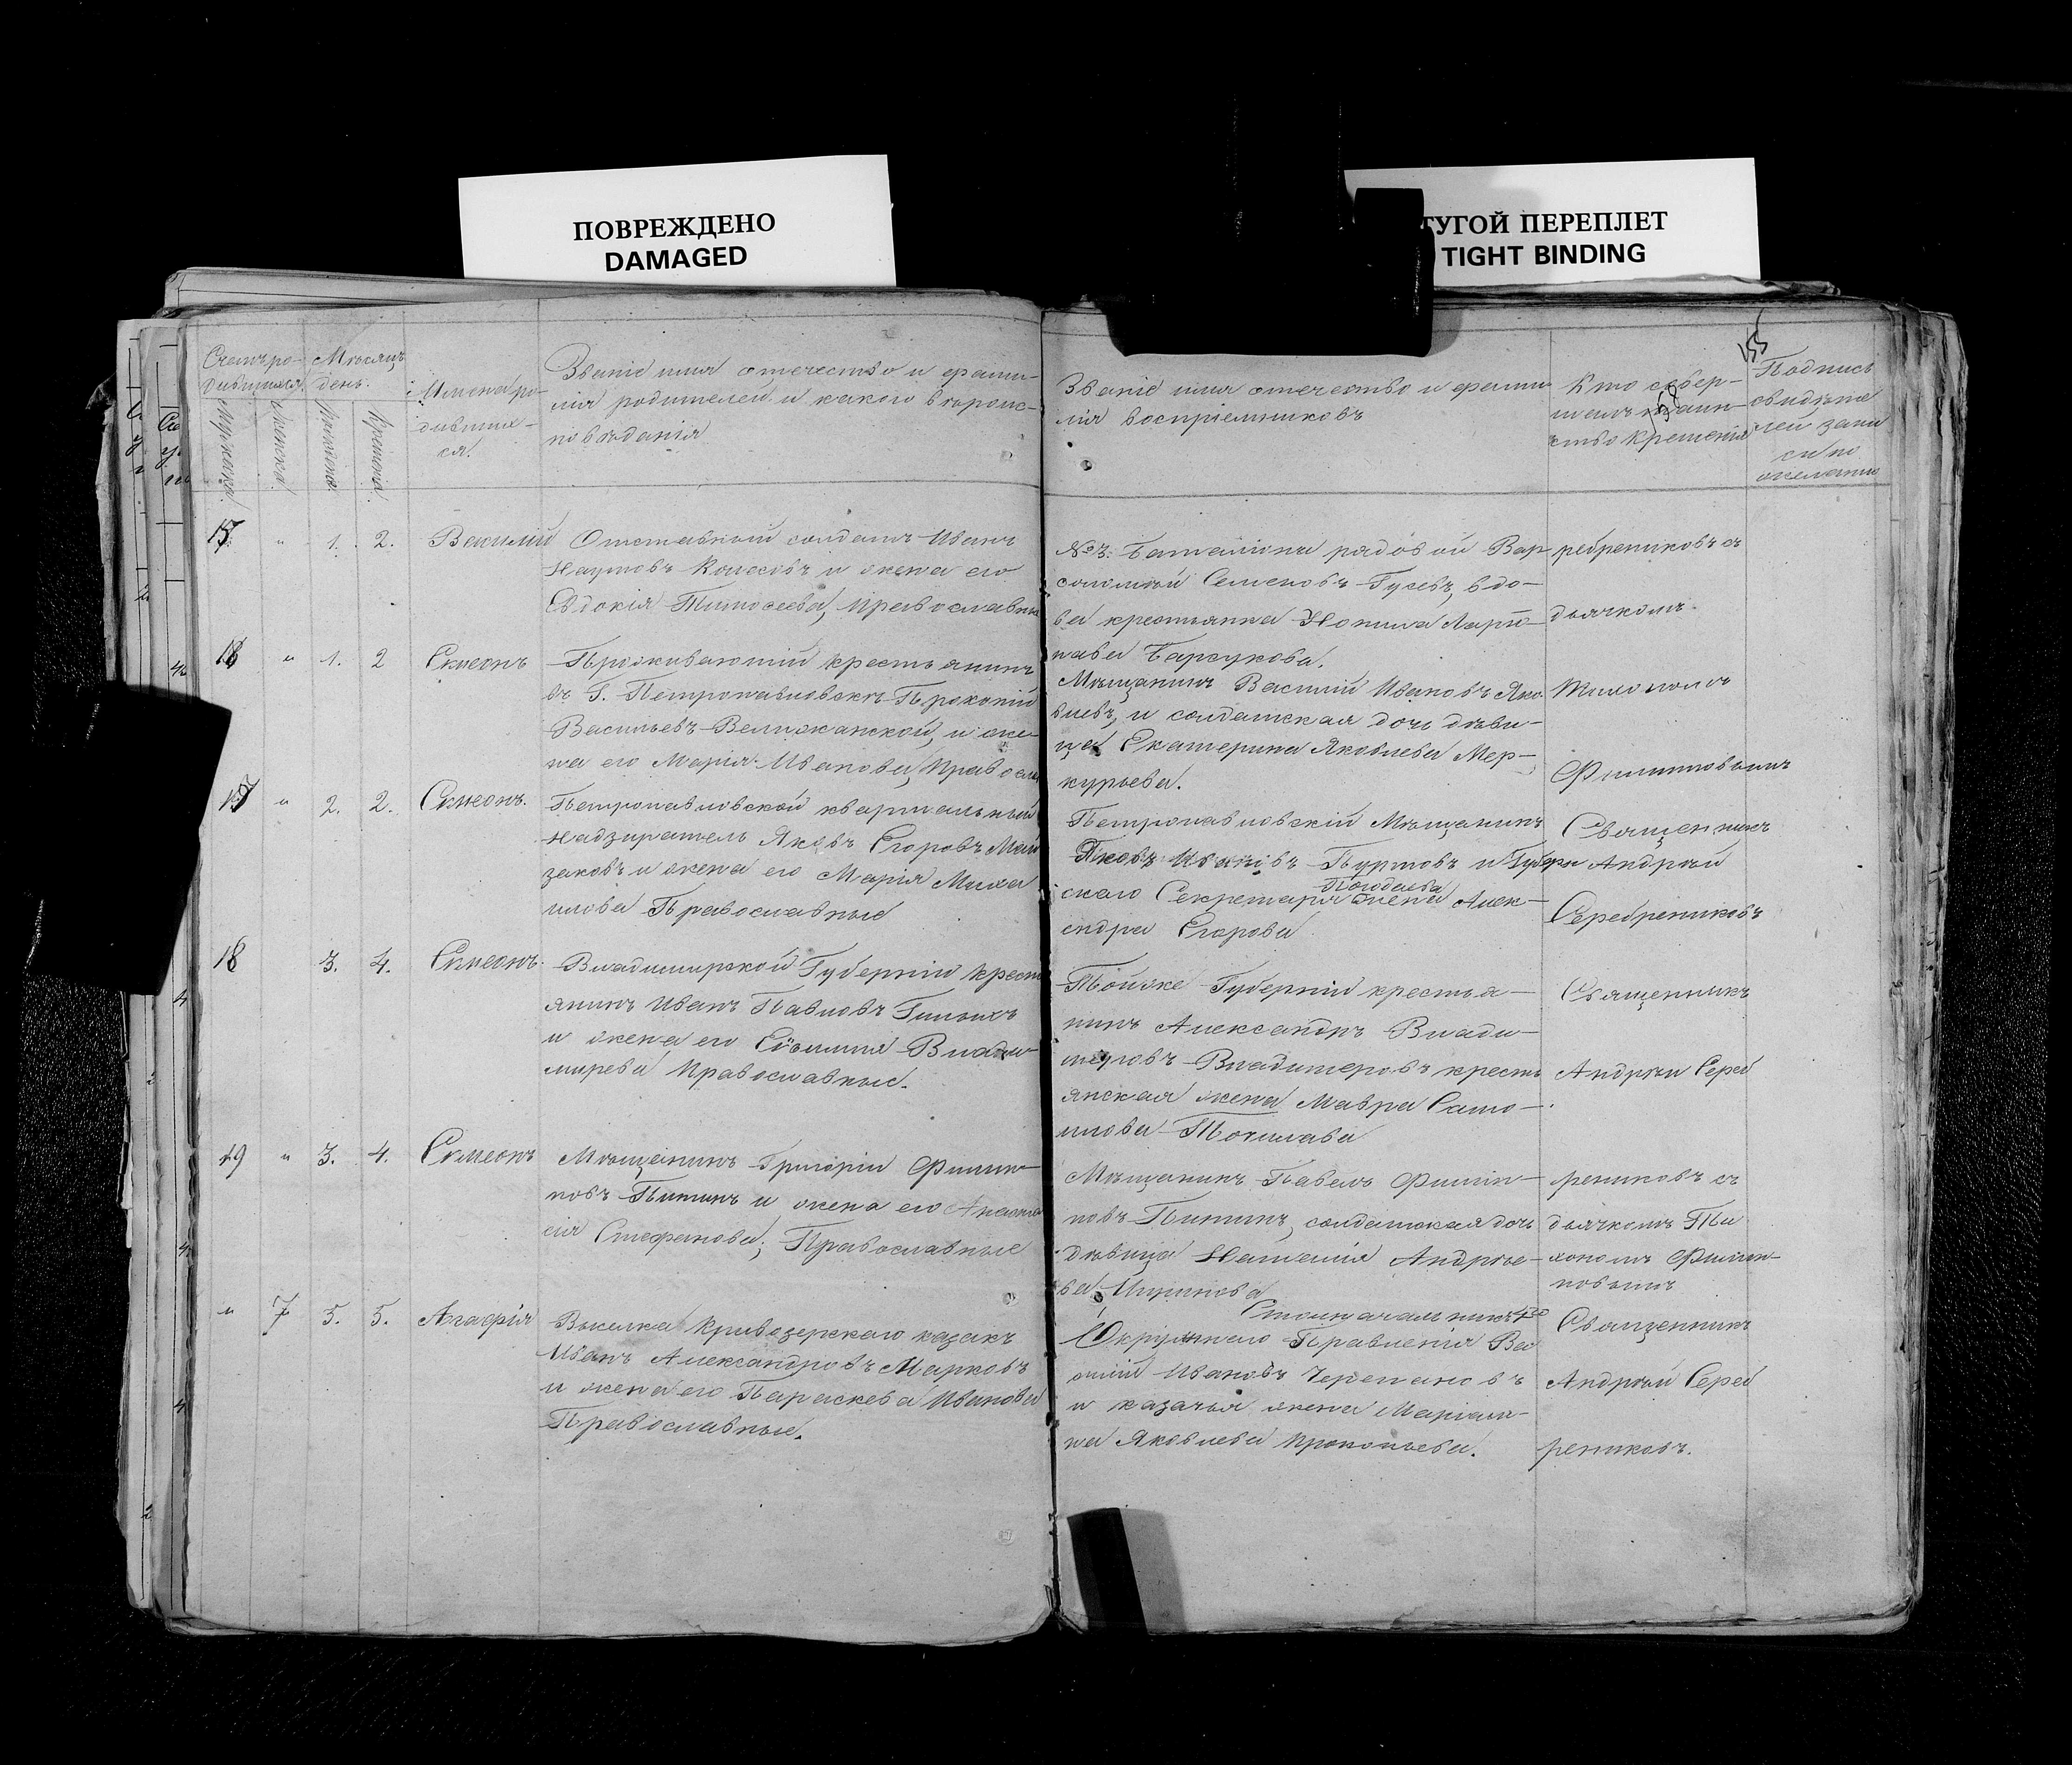 ПОВРЕЖДЕНО
DAMAGED
ТУГОЙ ПЕРЕПЛЕТ
TIGHT BINDING
155
158
Счетъ ро-
дившихся.
Мужеска.
Женска.
Мѣсяцъ
день.
Рожденія.
Крещенія.
Имена ро-
дивших-
ся.
Званіе имя отечество и фами-
лія родителей и какого вѣроис-
повѣданія
Званіе имя отечество и фами
лія воспріемниковъ
Кто совер-
шалъ таин-
ство крещенія
Подпись
свидѣте
лей запи
си по
желанію
15 " 1. 2. Василій
Отставный солдатъ Иванъ
Наумовъ и жена его
Евдокія Тимофеева, православные
№ 3. Баталіона рядовой Вар
соломѣй Семеновъ Гусевъ, вдо-
ва крестьянка
нава Барсукова.
ребрениковъ съ
дьячкомъ
16 " 1. 2 Симеонъ
Проживающій крестьянинъ
въ Г. Петропавловскѣ Прокопій
Васильевъ Велижанской, и же-
на его Марія Иванова, Правосла
Мѣщанинъ Василій Ивановъ Яко-
влевъ, и солдатская дочь дѣви-
ца Екатерина Яковлева Мер-
курьева.
Филиповымъ
17 " 2. 2. Симеонъ.
Петропавловской квартальный
Надзиратель Яковъ Егоровъ
заковъ и жена его Марія Миха
илова Православные
Петропавловскій Мѣщанинъ
Яковъ Ивановъ Пурто​въ и Губерн
скаго Секретаря жена Алек-
сндра Егорова
Священникъ
Андрѣй
Серебрениковъ
18 3. 4. Симеонъ.
Владимирской Губерніи крест
янинъ Иванъ Павловъ
и жена его Владі-
мирева Православные.
Тойже Губерніи крестья-
нинъ Александръ Влади-
меровъ Владимеровъ крестъ
янская жена Мавра Само-
илова
Священникъ
Андрѣй Сереб
19 " 3. 4. Симеонъ
Мѣщанинъ Григорій Филип-
повъ Питинъ и жена его Анаста
сія Стефанова; Православные
Мѣщанинъ Павелъ Филип-
повъ Питинъ, солдатская дочь
дѣвица Наталія Андрѣе-
ва
рениковъ съ
дьячкомъ Ти
хономъ Филип-
повымъ
" 7 5. 5. Агафія
Выселка Кривозерскаго казакъ
Иванъ Александровъ Марковъ
и жена его Параскева Иванова
Православные.
Столначальникъ
Окружнаго Правленія Ва
силій Ивановъ Черепановъ
и казачья жена Маріам-
на Яковлева Прокопьева.
Священникъ
Андрѣй Сереб
рениковъ.